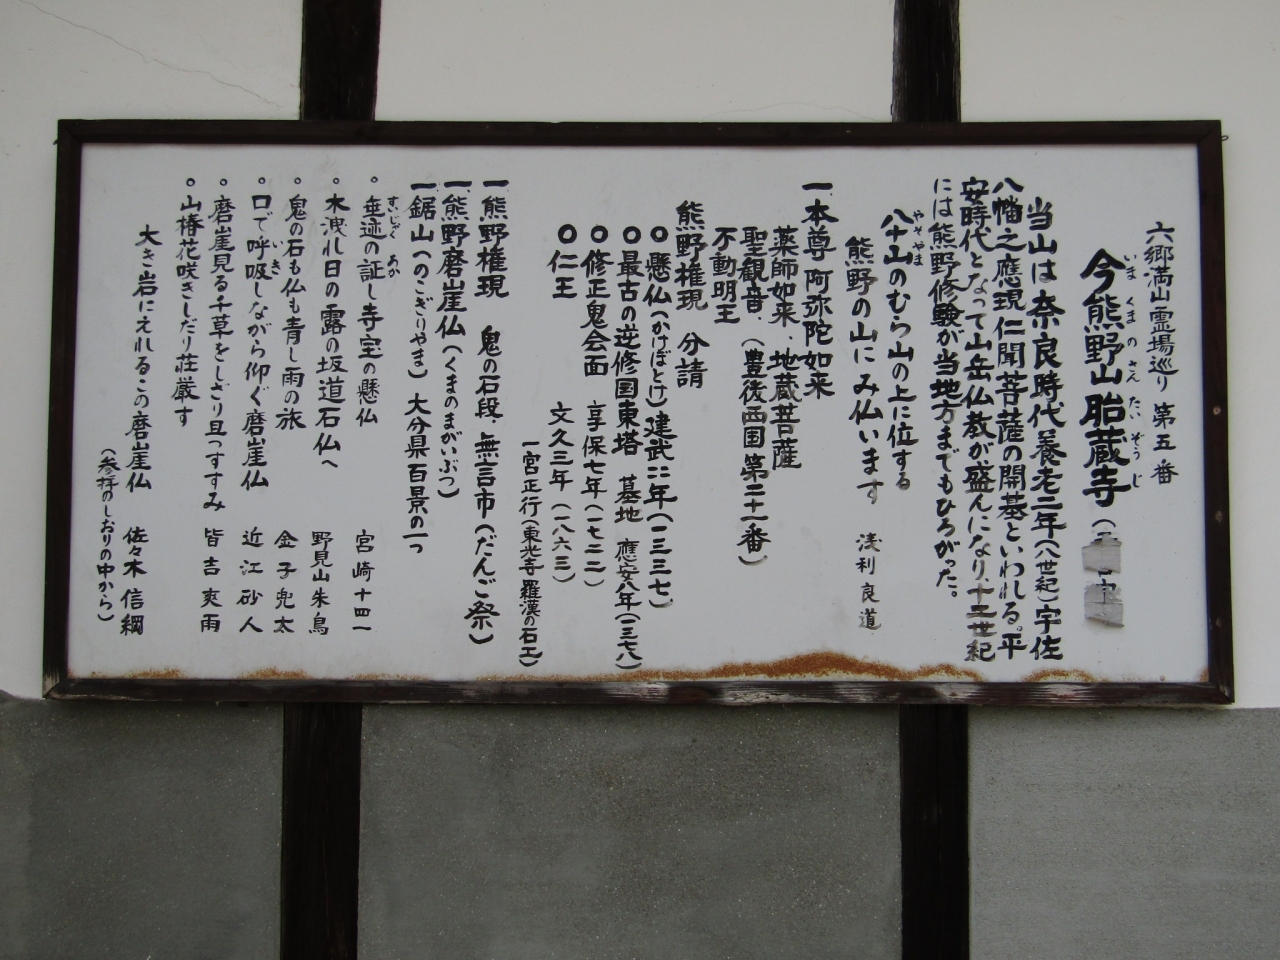 六郷満山霊場巡り 第五番
今熊野山胎蔵寺
いまくまのさんたいぞうじ
当山は奈良時代養老二年(八世紀)宇佐
八幡之應現仁聞菩薩の開基といわれる。平
安時代となって山岳仏教が盛んになり、十二世紀
には熊野修験が当地方までもひろがった。
八十山のむら山の上に位する
やそやま
熊野の山にみ仏います 浅利良道
一、本尊 阿弥陀如来
薬師如来、地蔵菩薩
聖観音、(豊後西国第二十一番)
不動明王
熊野権現 分請
○懸仏(かけばとけ)建武二二年(一三三七)
○最古の逆修国東塔 墓地 應安八年(一三七八)
○修正鬼会面 享保七年(一七二二)
○仁王 文久三年(一八六三)
一宮正行(東光寺羅漢の石工)
一、熊野権現 鬼の石段、無言市(だんご祭)
一、熊野磨崖仏(くまのまがいぶつ)
一、鋸山(のこぎりやま)大分県百景の一つ
。垂迹の証し寺宝の懸仏 宮崎十四一
すいじゃく あか
。木洩れ日の露の坂道石仏へ 野見山朱鳥
。鬼の石も仏も青し雨の旅 金子兜太
。口で呼吸しながら仰ぐ磨崖仏 近江砂人
いき
。磨崖見る千草をしざり且つすすみ 皆吉爽雨
。山椿花咲きしだり荘厳す
大き岩にえれるこの磨崖仏 佐々木信綱
(参拝のしおりの中から)